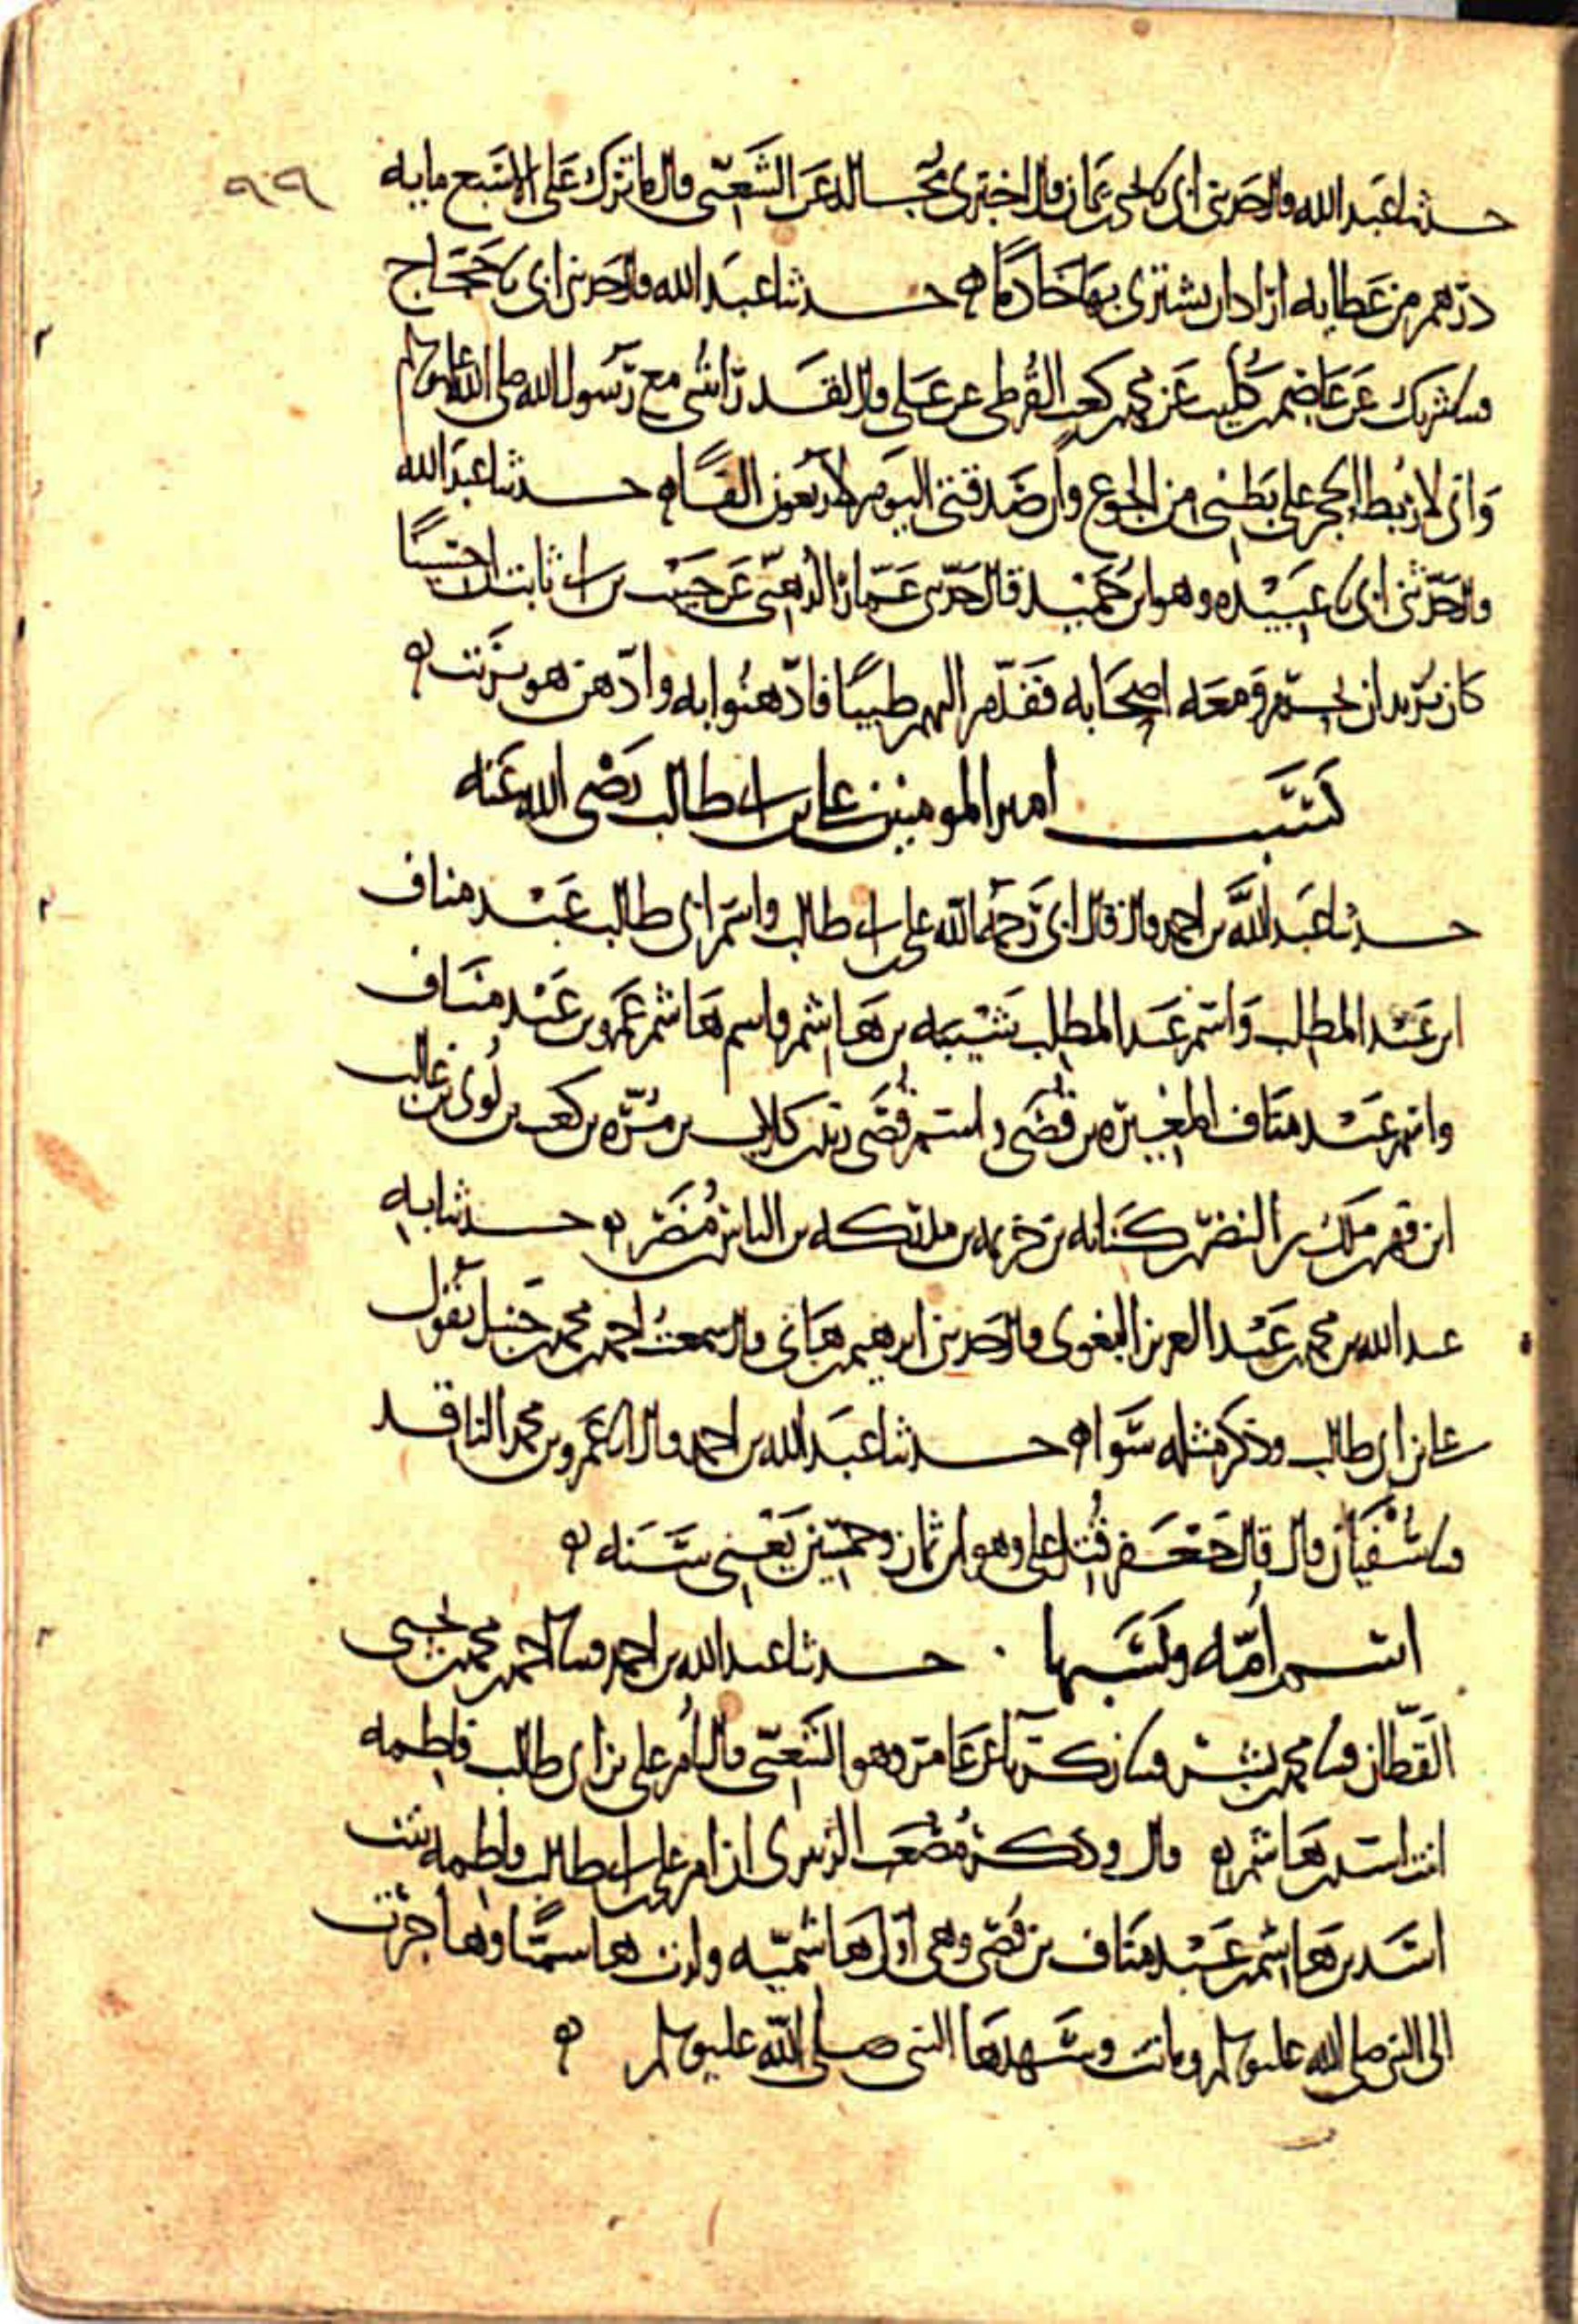 حدثنا عبد الله قال حدثني ابي نا يحيى بن يمان قال اخبرني مجالد عن الشعبي قال ما ترك علي الا سبع مايه
درهم من عطايه اراد ان يشتري بها خادما ه حدثنا عبد الله قال حدثني ابي نا حجاج
قثنا شريك عن عاصم بن كليب عن محمد بن كعب القرظي عن علي قال لقد رأيتني مع رسول الله صلى الله عليه وسلم
واني لاربط الحجر على بطني من الجوع وان صدقتي اليوم لاربعون الفا ه حدثنا عبد الله
قال حدثني ابي نا عبيده وهو ابن حميد قال حدثني عمار الدهني عن حبيب بن ابي ثابت ان حسينا
كان يريد ان يحرم ومعه اصحابه فقدم اليهم طيبا فادهنوا به وادهن هو بزيت ه
نسب امير المومنين علي بن ابي طالب رضي الله عنه
حدثنا عبد الله بن احمد قال قال ابي رحمه الله علي بن ابي طالب واسم ابي طالب عبد مناف
ابن عبد المطلب واسم عبد المطلب شيبه بن هاشم واسم هاشم عمرو بن عبد مناف
واسم عبد مناف المغيره بن قصي واسم قصي زيد بن كلاب بن مره بن كعب بن لوي بن غالب
ابن فهر بن ملك بن النضر بن كنانه بن خزيمه بن مدركه بن الياس بن مضر ه حدثنا به
عبد الله بن محمد بن عبد العزيز البغوي قال حدثني ابرهيم بن هاني قال سمعت احمد بن محمد بن حنبل يقول
علي بن ابي طالب وذكر مثله سواء ه حدثنا عبد الله بن احمد قال نا عمرو بن محمد الناقد
قثنا سفيان قال قال جعفر قتل علي وهو ابن ثمان وخمسين يعني سنه ه
اسم امه ونسبها . حدثنا عبد الله بن احمد قثنا احمد بن محمد بن يحيى
القطان قثنا محمد بن بشر قثنا زكريا عن عامر وهو الشعبي قال ام علي بن ابي طالب فاطمه
ابنت اسد بن هاشم ه قال وذكر مصعب الزبيري ان ام علي بن ابي طالب فاطمه بنت
اسد بن هاشم بن عبد مناف بن قصي وهي اول هاشميه ولدت هاشميا وهاجرت
الى النبي صلى الله عليه وسلم وماتت وشهدها النبي صلى الله عليه وسلم ه